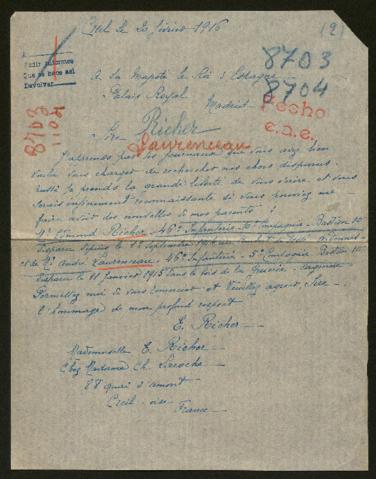 Creil le 20 février 1916
(2)
A
Pedir informe
Que se hace así
Devolver
8703
8704
8703
1104
A Sa Majesté le Roi d'Espagne
Palais Royal
Madrid
Hecho
c.a.e.
Sire
Richer
Laurenceau
J'apprends par les journaux que vous avez bien
voulu vous charger de rechercher nos chers disparus.
Aussi je prends la grande liberté de vous écrire et vous
serais infiniment reconnaissante si vous pouviez me
faire avoir des nouvelles de mes parents :
Mr Edmond Richer 46e Infanterie 10e Compagnie
disparu depuis le 22 septembre 1914
et de Mr André Laurenceau 46e Infanterie 5e Compagnie
disparu le 11 janvier 1915 dans le bois de la Gruerie Argonne
Permettez moi de vous remercier et veuillez agréer, Sire
l'hommage de mon profond respect
E. Richer
Mademoiselle E. Richer
Chez Madame Ch. Laroche
28 quai d'amont
Creil oise
France